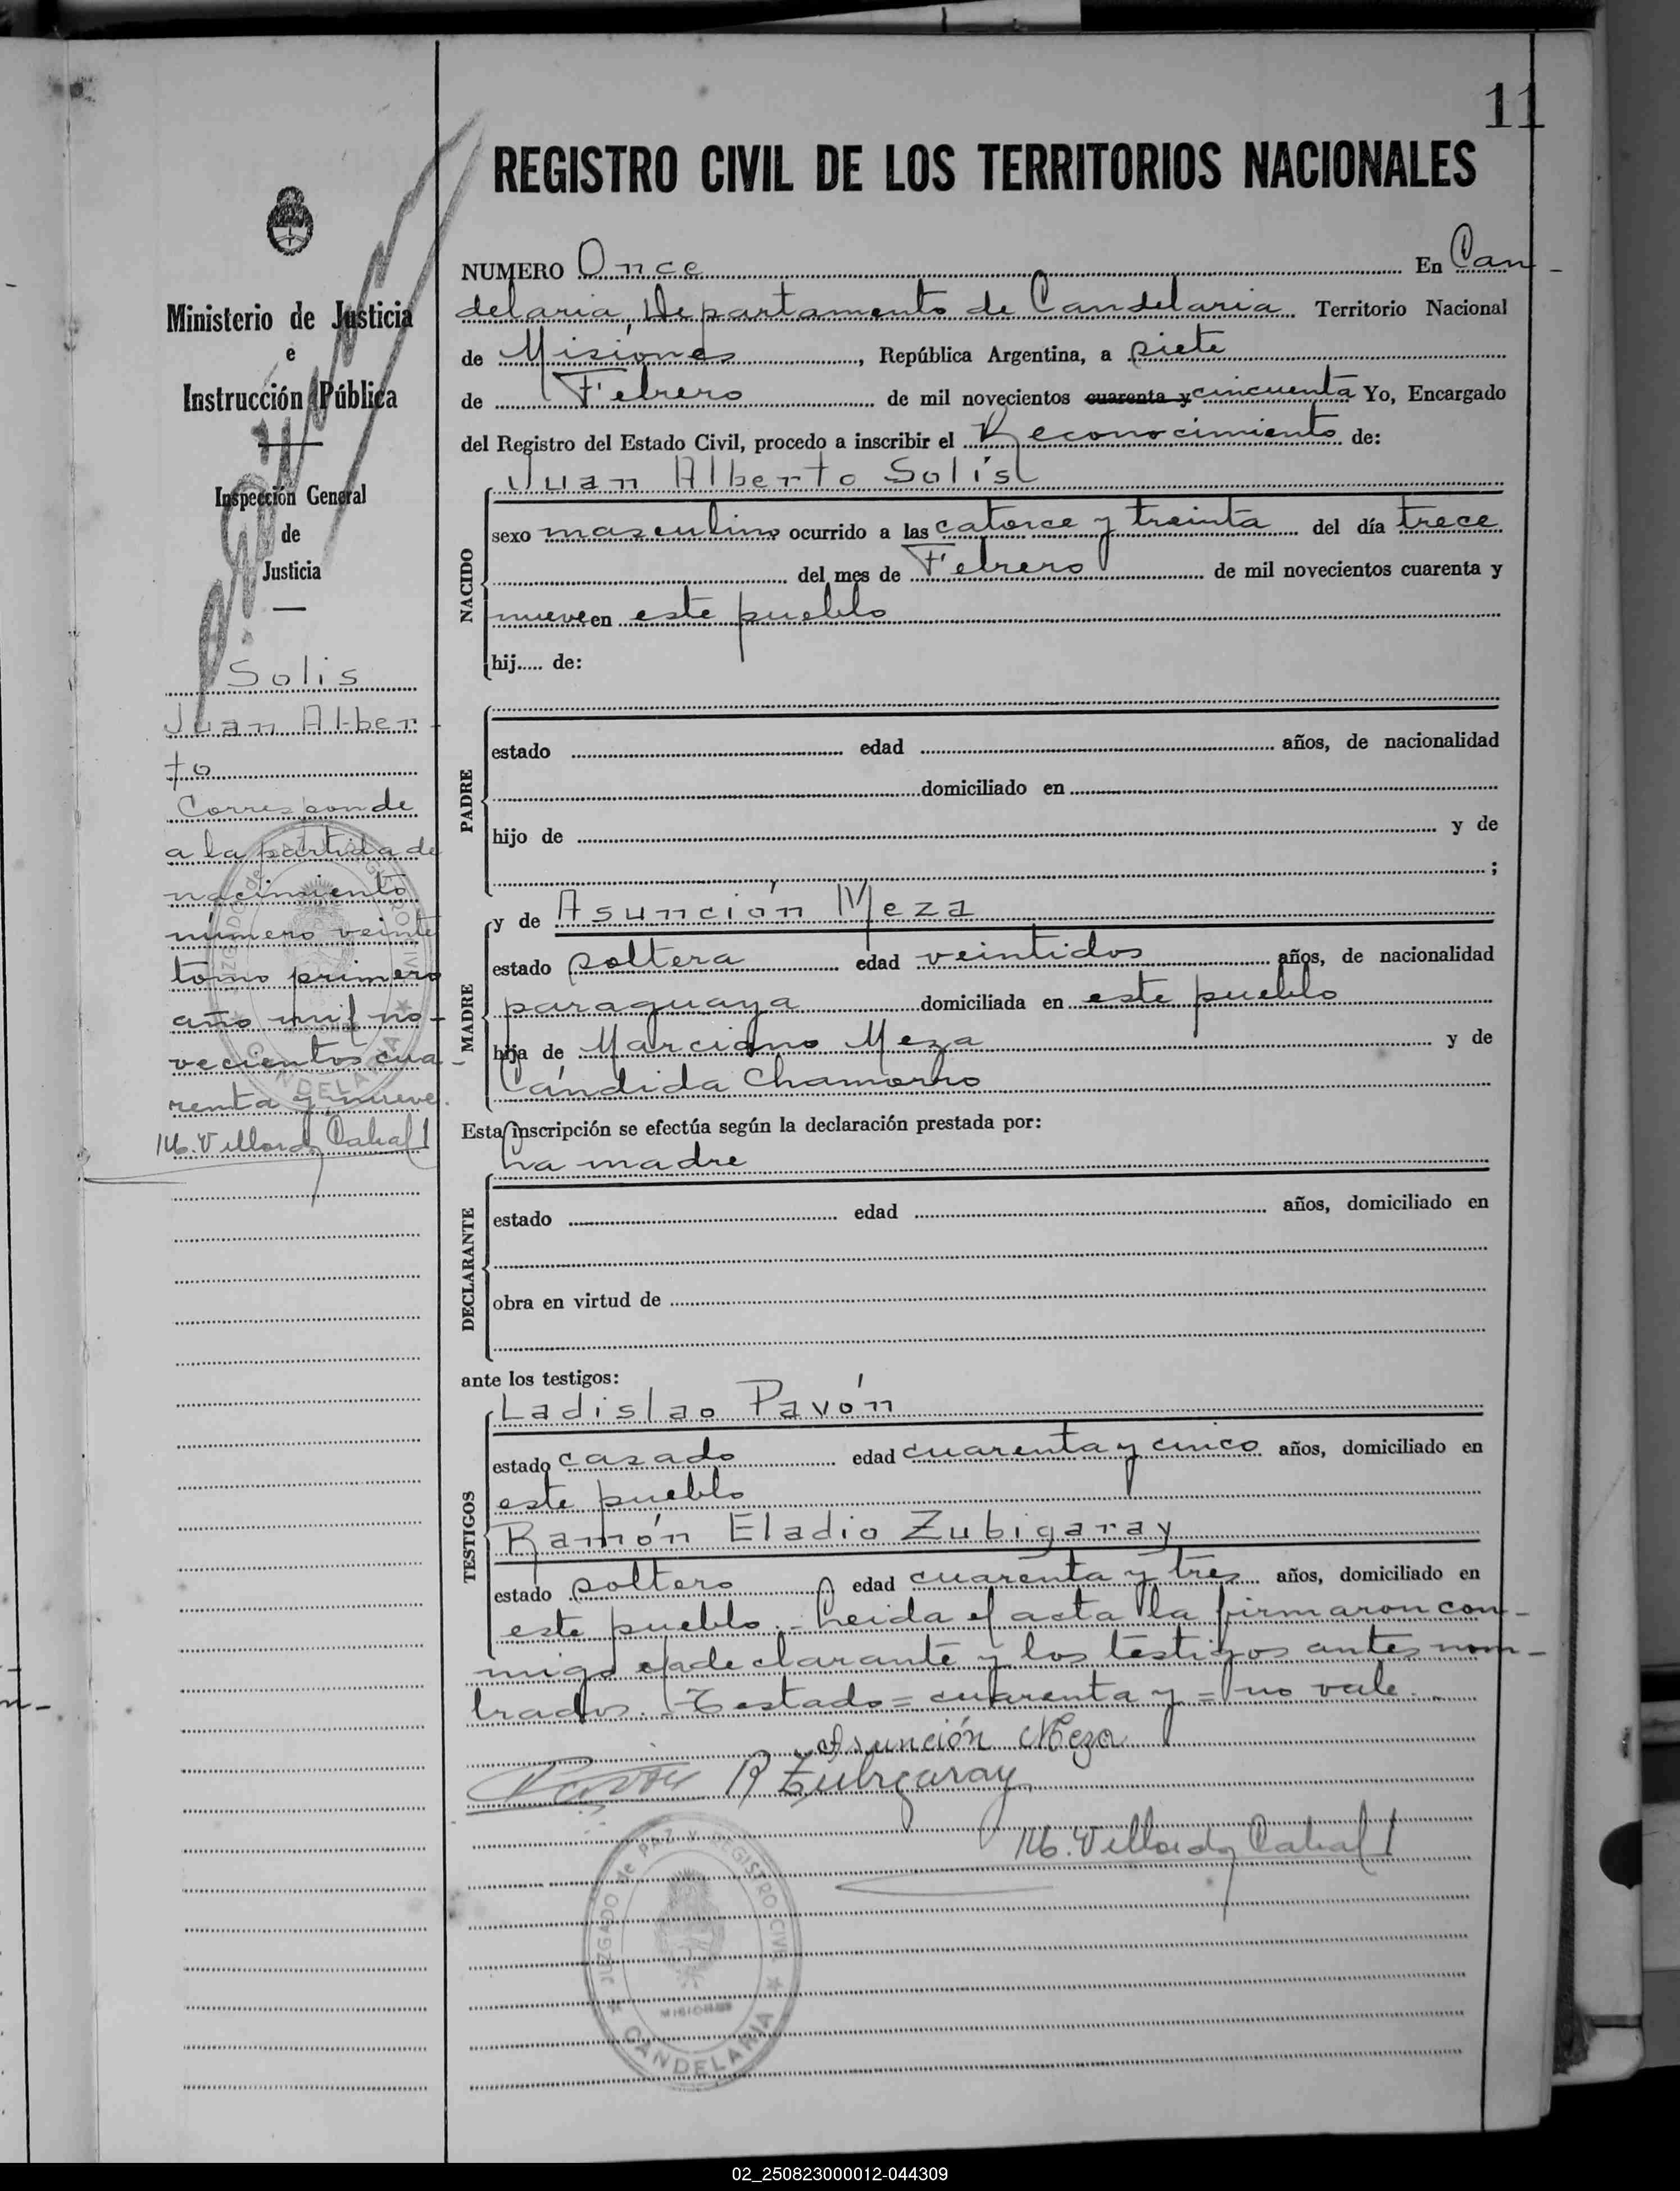 11
REGISTRO CIVIL DE LOS TERRITORIOS NACIONALES
NUMERO Once En Can-
delaria, Departamento de Candelaria Territorio Nacional
de Misiones, República Argentina, a siete
de Febrero de mil novecientos cuarenta y cincuenta Yo, Encargado
del Registro del Estado Civil, procedo a inscribir el Reconocimiento de:
Juan Alberto Solis
NACIDO
sexo masculino ocurrido a las catorce y treinta del día trece
del mes de Febrero de mil novecientos cuarenta y
nueve en este pueblo
hij..... de:
PADRE
estado edad años, de nacionalidad
domiciliado en
hijo de y de
;
MADRE
y de Asunción Meza
estado soltera edad veintidos años, de nacionalidad
paraguaya domiciliada en este pueblo
hija de Marciano Meza y de
Cándida Chamorro
Esta inscripción se efectúa según la declaración prestada por:
La madre
DECLARANTE
estado edad años, domiciliado en
obra en virtud de
ante los testigos:
TESTIGOS
Ladislao Pavón
estado casado edad cuarenta y cinco años, domiciliado en
este pueblo
Ramón Eladio Zubigaray
estado soltero edad cuarenta y tres años, domiciliado en
este pueblo.- Leida el acta la firmaron con-
migo declarante y los testigos antes nom-
brados. Testado = cuarenta y = no vale.
Asunción Meza
R Zubigaray
M. Villordo Cabral
JUZGADO de PAZ Y REGISTRO CIVIL
MISIONES
CANDELARIA
Ministerio de Justicia
e
Instrucción Pública
Inspección General
de
Justicia
Solis
Juan Alber-
to
Corresponde
a la partida de
nacimiento
número veinte
tomo primero
año mil no-
vecientos cua-
renta y nueve.
M. Villordo Cabral
CANDELARIA
02_250823000012-044309